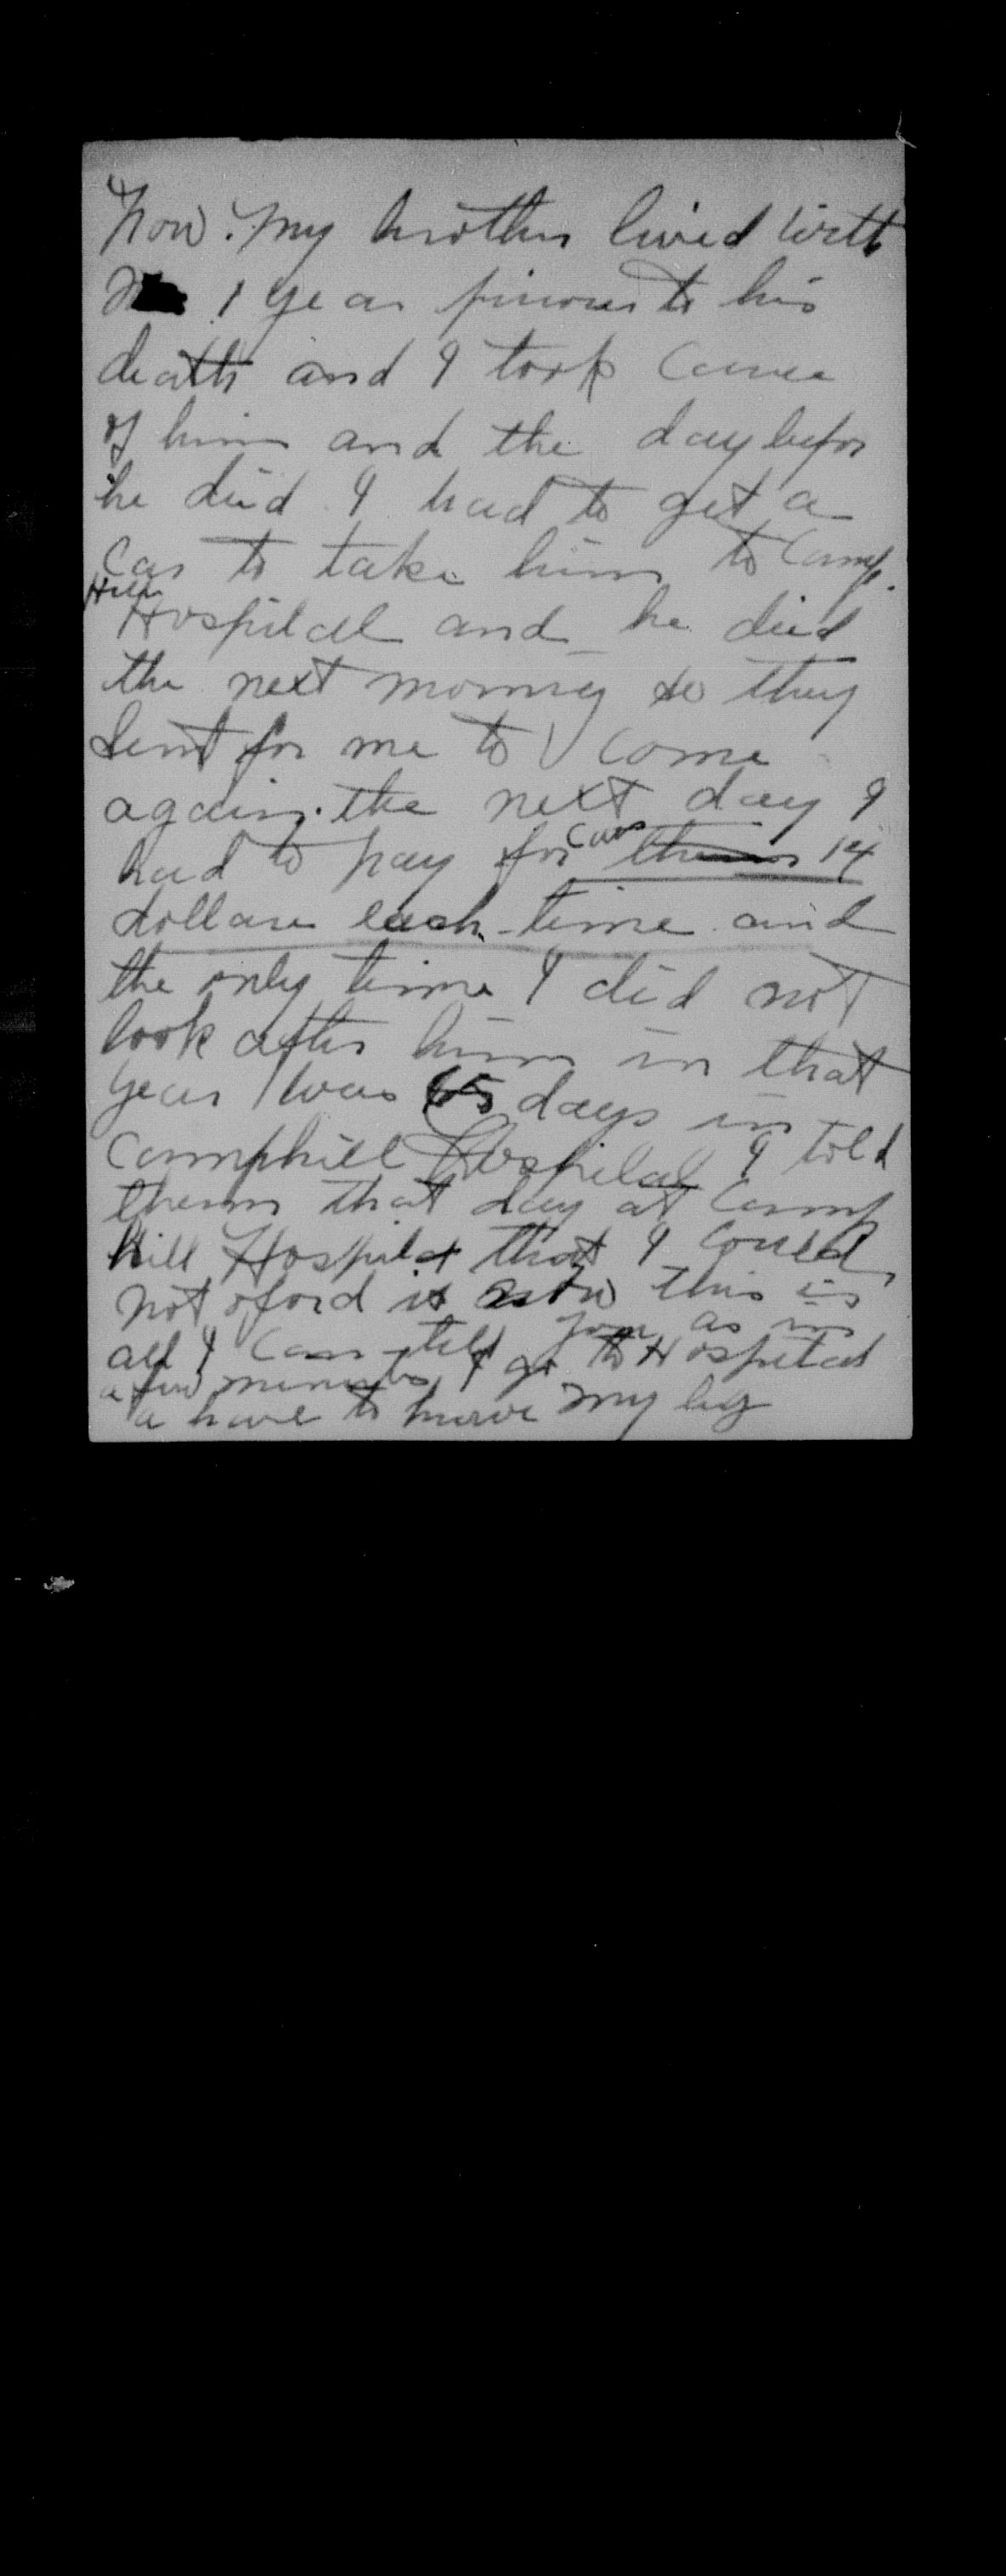 Now. My brother lived with
1 year privous to his
death and I took Carree
of him and the day befor
he died I had to get a
Car to take him to Camp.
Hill
Hospital and he died
the next morning so they
sent for me to come
again. the next day I
had to pay for cars 14
dollars each time and
the only time I did not
look after him in that
year was 15 days in
Camphill Hospital I told
them that day at Camp
hill Hospital that I could
not oford it now this is
all I can tell you as in
a few minutes I go to Hospital
a have to my leg